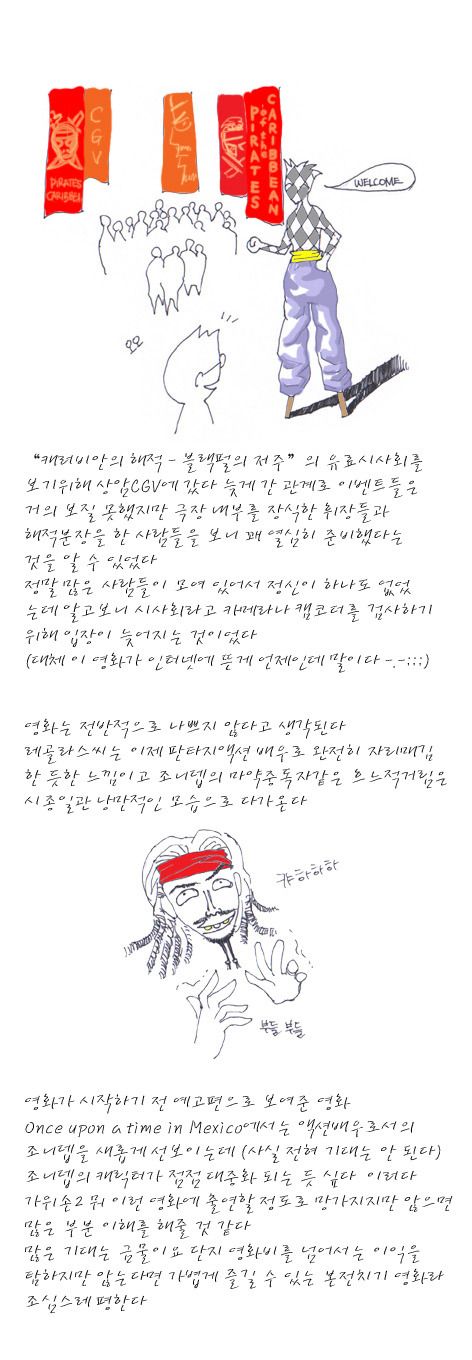 CGV
PIRATES
CARIBBEA
CARIBBEAN
of the
PIRATES
WELCOME
오오
“캐러비안의 해적 - 블랙펄의 저주” 의 유료시사회를
보기위해 상암CGV에 갔다 늦게 간 관계로 이벤트들은
거의 보질 못했지만 극장 내부를 장식한 휘장들과
해적분장을 한 사람들을 보니 꽤 열심히 준비했다는
것을 알 수 있었다
정말 많은 사람들이 모여 있어서 정신이 하나도 없었
는데 알고보니 시사회라고 카메라나 캠코더를 검사하기
위해 입장이 늦어지는 것이었다
(대체 이 영화가 인터넷에 뜬게 언제인데 말이다 -.-;;;)
영화는 전반적으로 나쁘지 않다고 생각된다
레골라스씨는 이제 판타지액션 배우로 완전히 자리매김
한 듯한 느낌이고 조니뎁의 마약중독자같은 흐느적거림은
시종일관 낭만적인 모습으로 다가온다
캬하하하
부들 부들
영화가 시작하기 전 예고편으로 보여준 영화
Once upon a time in Mexico에서는 액션배우로서의
조니뎁을 새롭게 선보이는데 (사실 전혀 기대는 안 된다)
조니뎁의 캐릭터가 점점 대중화 되는 듯 싶다 이러다
가위손2 뭐 이런 영화에 출연할 정도로 망가지지만 않으면
많은 부분 이해를 해줄 것 같다
많은 기대는 금물이요 단지 영화비를 넘어서는 이익을
탐하지만 않는다면 가볍게 즐길 수 있는 본전치기 영화라
조심스레 평한다